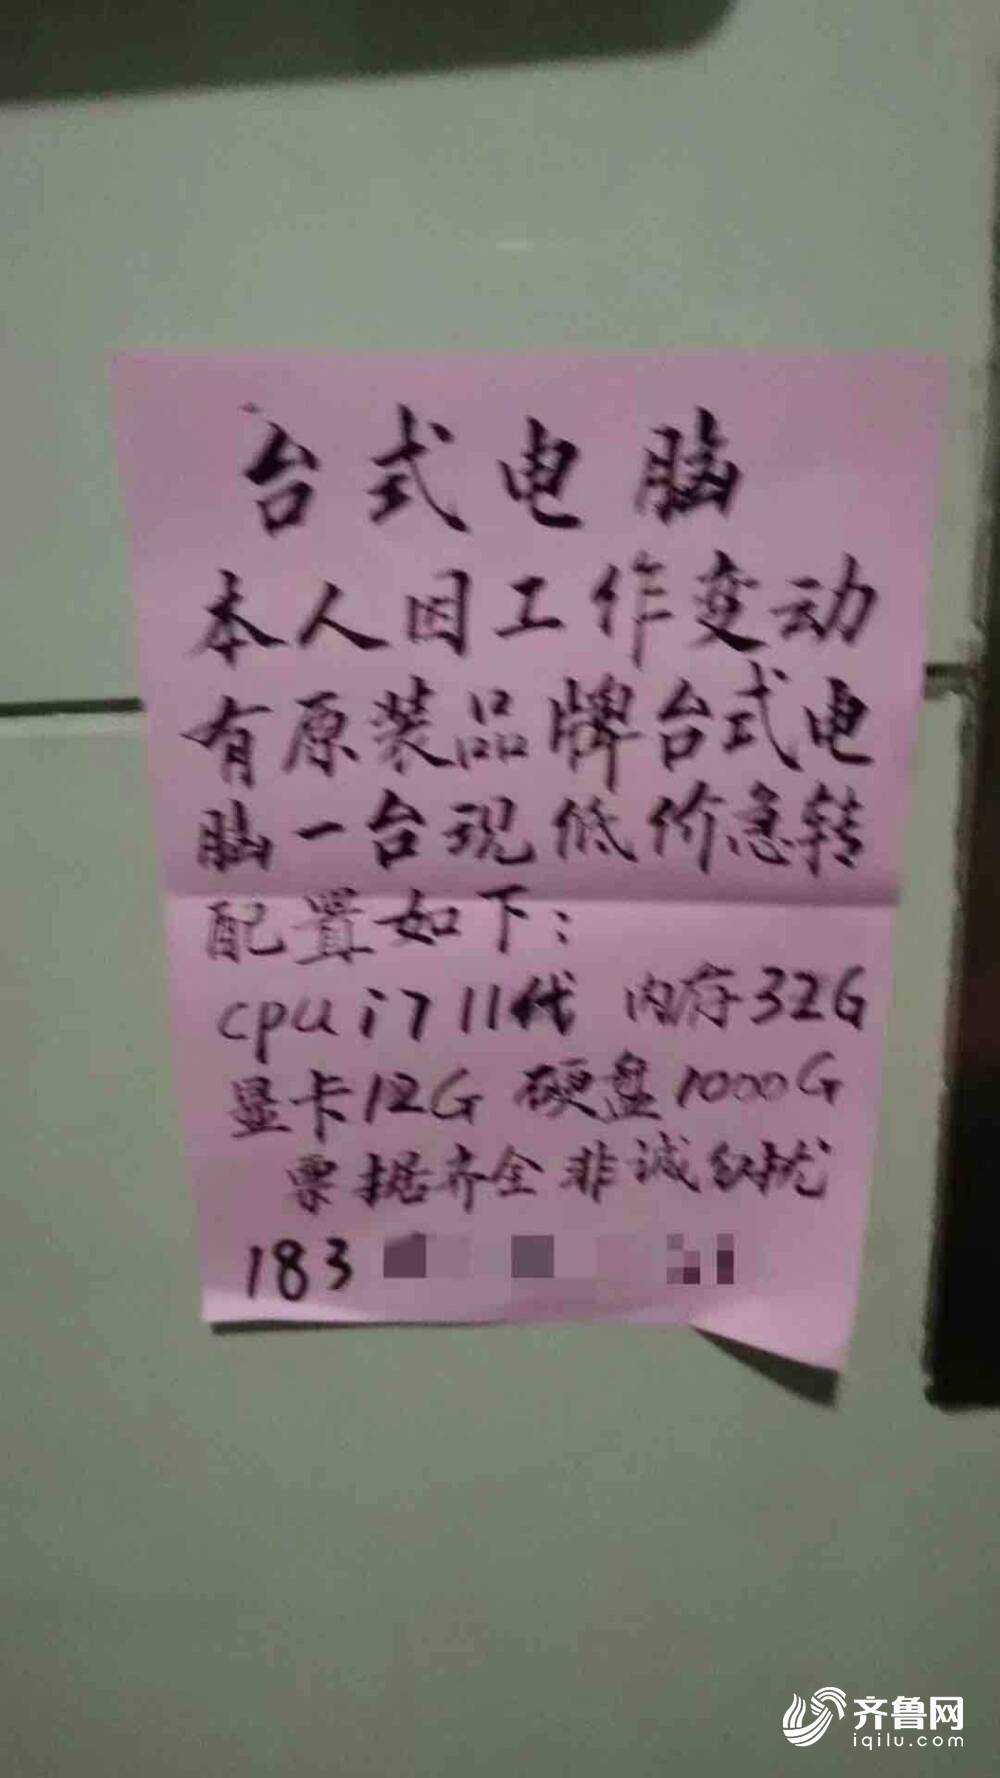 台式电脑
本人因工作变动
有原装品牌台式电
脑一台现低价急转
配置如下：
cpu i7 11代 内存32G
显卡12G 硬盘1000G
票据齐全 非诚勿扰
183
齐鲁网
iqilu.com